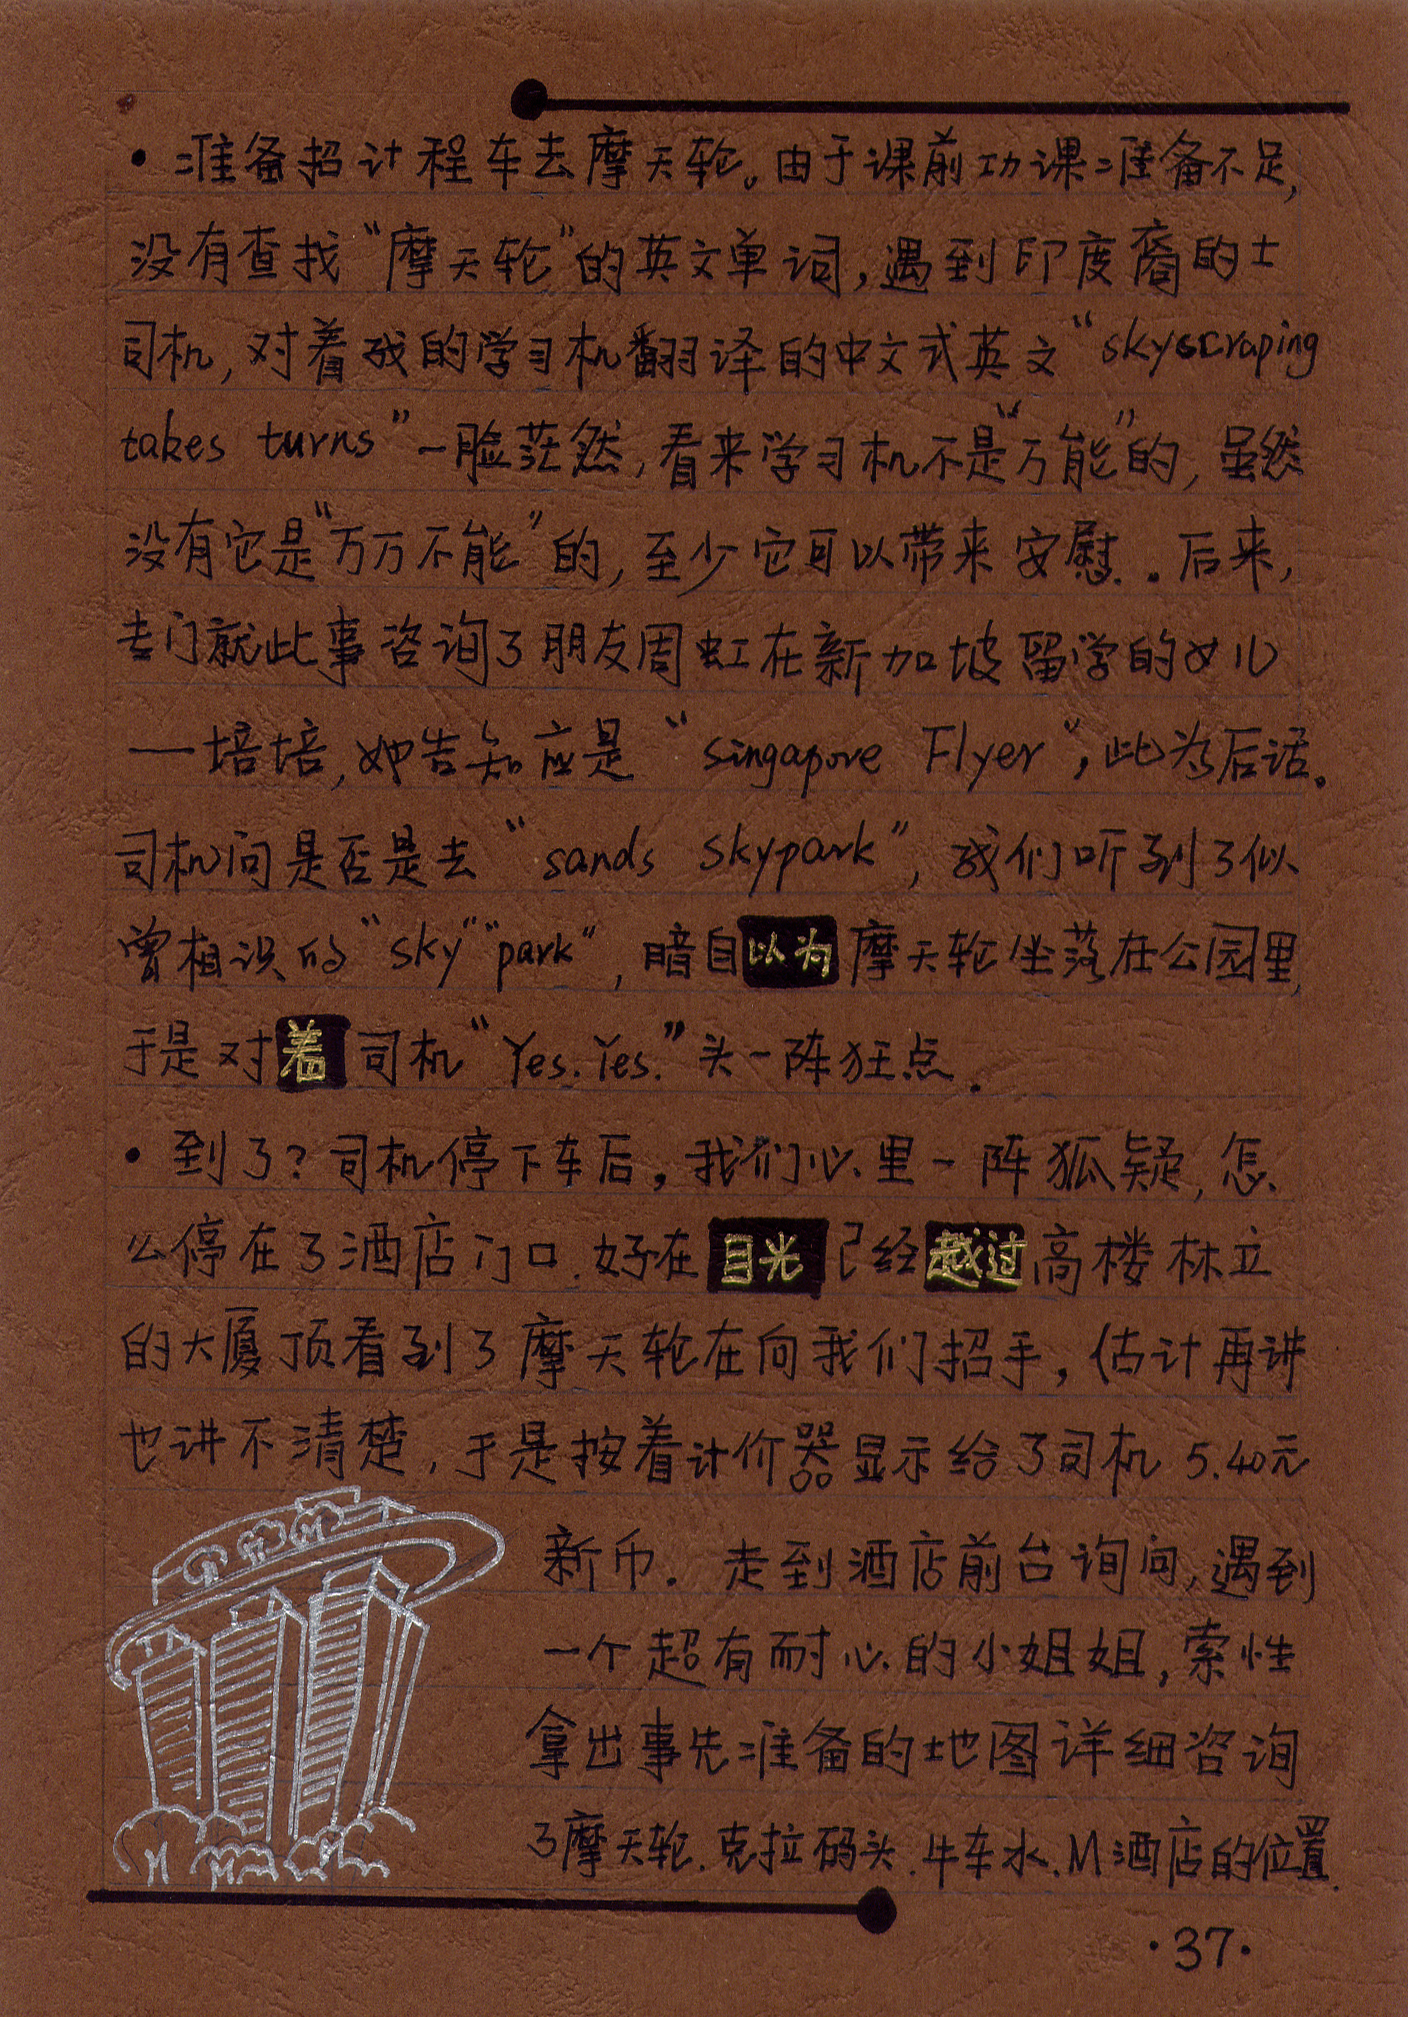 ·准备招计程车去摩天轮。由于课前功课准备不足,
没有查找“摩天轮”的英文单词,遇到印度裔的士
司机,对着我的学习机翻译的中文式英文“skyscraping
takes turns”一脸茫然,看来学习机不是“万能”的,虽然
没有它是“万万不能”的,至少它可以带来安慰.。后来,
专门就此事咨询了朋友周虹在新加坡留学的女儿
—培培,她告知应是“singapore Flyer”,此为后话。
司机问是否是去“sands skypark”,我们听到了似
曾相识的“sky”“park”,暗自以为摩天轮坐落在公园里,
于是对着司机“Yes.Yes.”头一阵狂点.
·到了?司机停下车后,我们心里一阵狐疑,怎
么停在了酒店门口.好在目光已经越过高楼林立
的大厦顶看到了摩天轮在向我们招手,估计再讲
也讲不清楚,于是按着计价器显示给了司机5.40元
新币.走到酒店前台询问,遇到
一个超有耐心的小姐姐,索性
拿出事先准备的地图详细咨询
了摩天轮.克拉码头.牛车水.M酒店的位置.
·37·